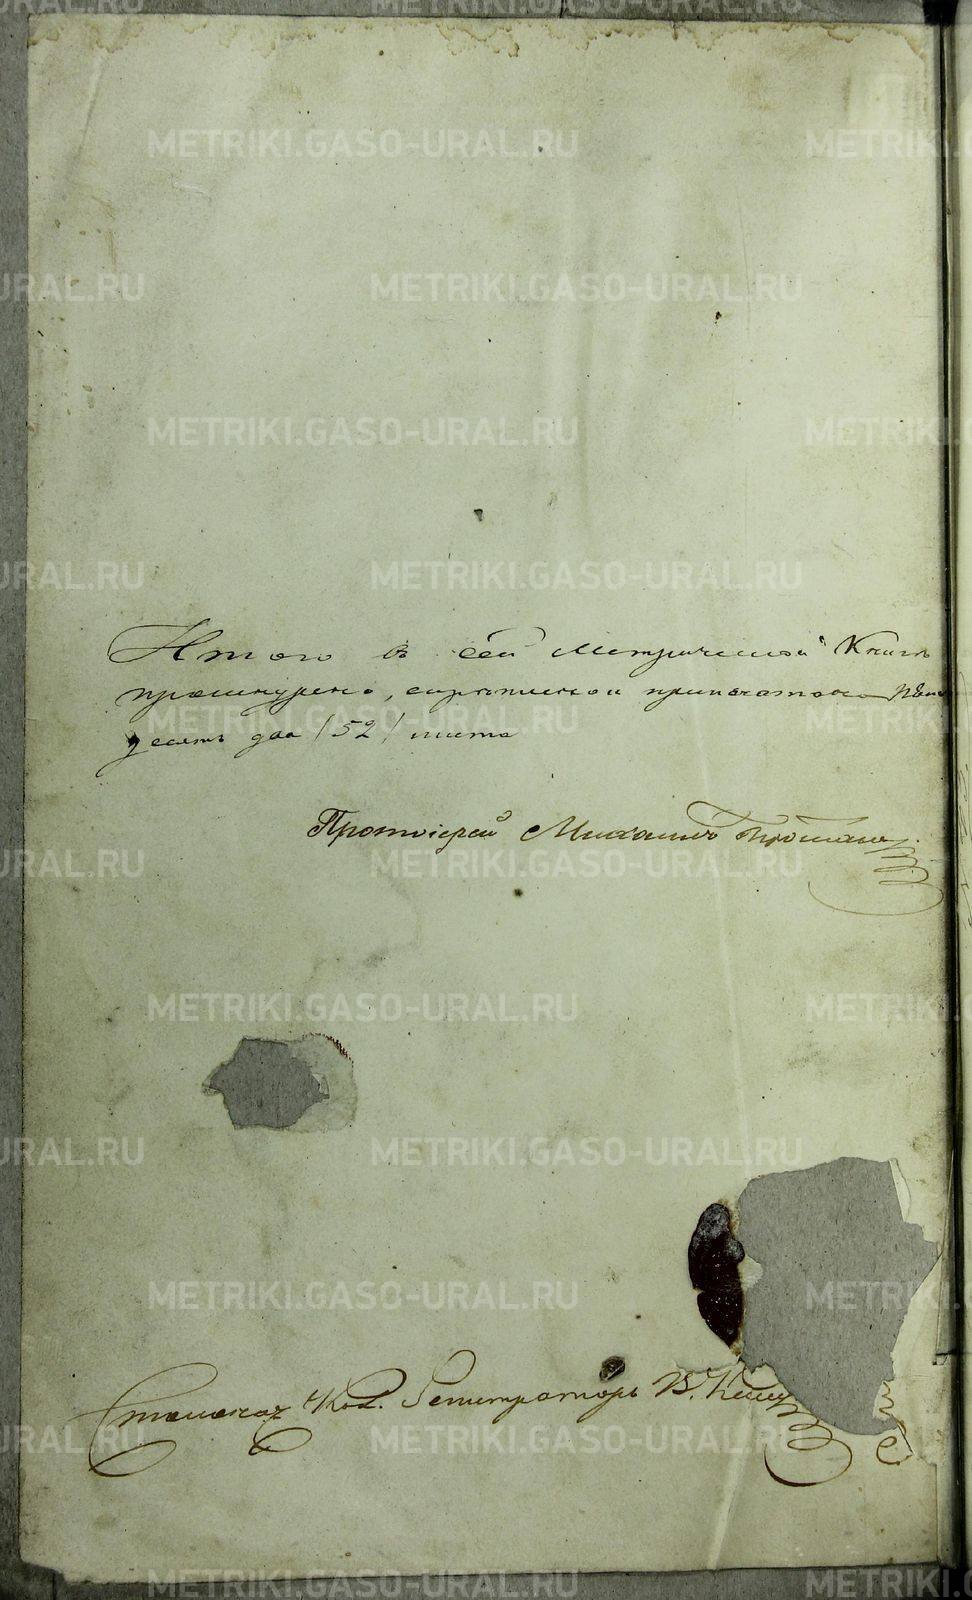 METRIKI.GASO-URAL.RU
Итого въ сей Метрической Книгѣ
прошнуровано, скрѣпленои припечатано пять
десятъ два /52/ листа
Протоіерей Михаилъ
Столонач. Кол. Регистраторъ В.